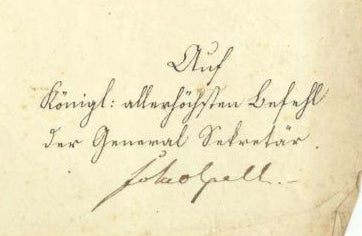 Auf
Königl: allerhöchsten Befehl
der General Sekretär.